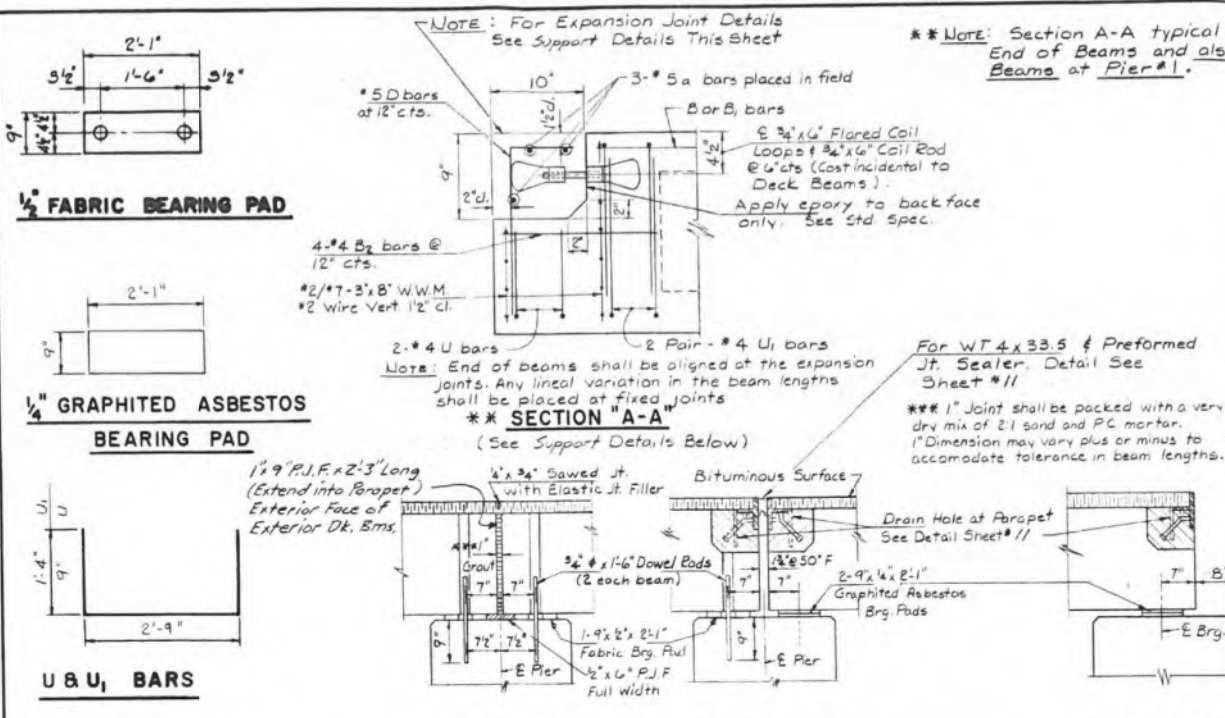 2'-1"
3½" 1'-6" 3½"
9"
4½" 4½"
½" FABRIC BEARING PAD
2'-1"
9"
¼" GRAPHITED ASBESTOS
BEARING PAD
U₁
U
1'-4"
9"
2'-9"
U & U₁ BARS
NOTE: For Expansion Joint Details
See Support Details This Sheet
10"
3-#5a bars placed in field
#5 D bars
at 12" cts.
1½" cl.
B or B₁ bars
9"
4½"
2" cl.
2"
2"
℄ ¾" x 6" Flared Coil
Loops & ¾" x 6" Coil Rod
@ 6" cts (Cost incidental to
Deck Beams).
Apply epoxy to back face
only. See Std. Spec.
4-#4 B₂ bars @
12" cts.
#2/#7-3"x8" W.W.M.
#2 Wire Vert. 1½" cl.
2-#4 U bars
2 Pair-#4 U₁ bars
NOTE: End of beams shall be aligned at the expansion
joints. Any lineal variation in the beam lengths
shall be placed at fixed joints
** SECTION "A-A"
(See Support Details Below)
** NOTE: Section A-A typical
End of Beams and als
Beams at Pier #1.
For WT 4 x 33.5 & Preformed
Jt. Sealer. Detail See
Sheet #11
*** 1" Joint shall be packed with a very
dry mix of 2:1 sand and PC mortar.
1" Dimension may vary plus or minus to
accomodate tolerance in beam lengths.
1"x 9" P.J.F. x 2'-3" Long
(Extend into Parapet)
Exterior Face of
Exterior Dk. Bms.
¼" x ¾" Sawed Jt.
with Elastic Jt. Filler
***1"
Grout
7" 7"
9"
7½" 7½"
℄ Pier
¾" ϕ x 1'-6" Dowel Rods
(2 each beam)
1-9"x ½"x 2'-1"
Fabric Brg. Pad
½" x 6" P.J.F
Full Width
Bituminous Surface
@ 50° F
7" 7"
9"
℄ Pier
Drain Hole at Parapet
See Detail Sheet #11
2-9"x ¼"x 2'-1"
Graphited Asbestos
Brg. Pads
7"
8"
℄ Brg.